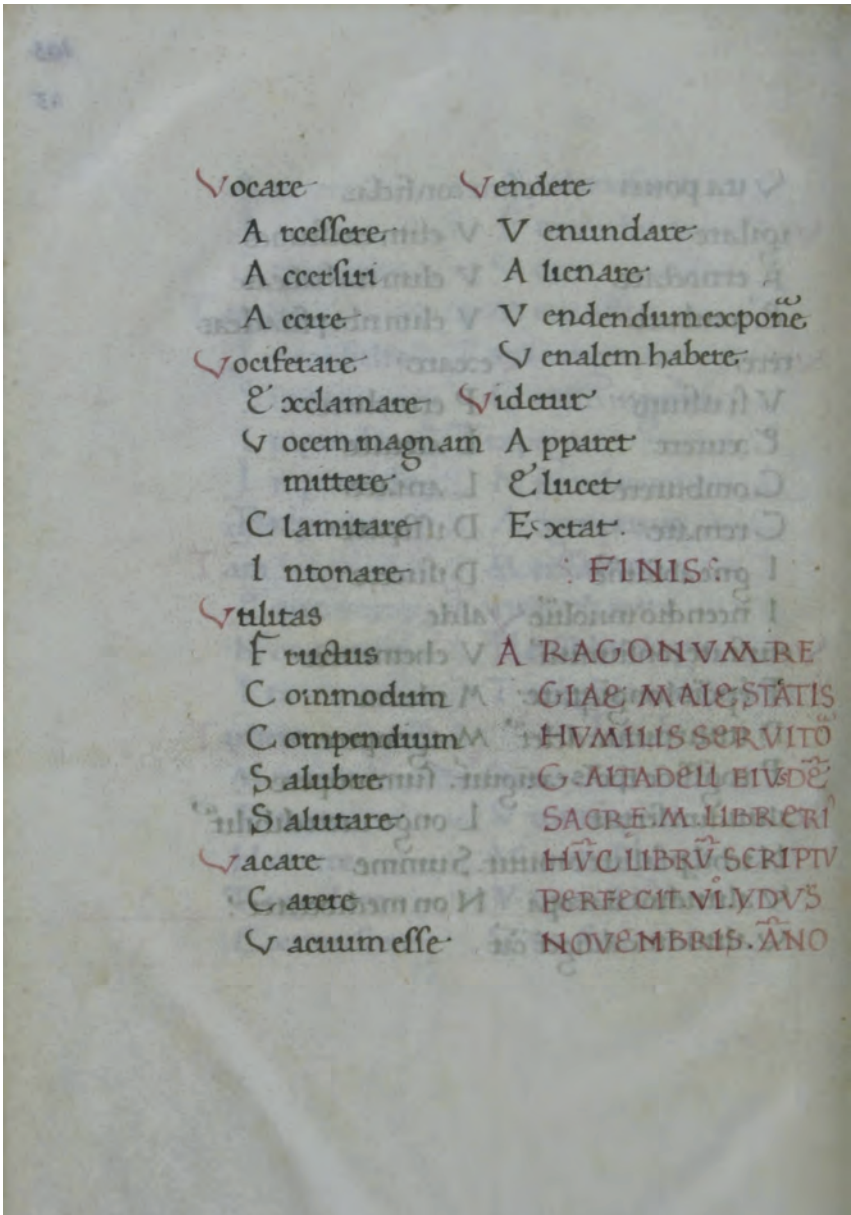 Vocare
Arcessere
Accersiri
Accire
Vociferare
Exclamare
Vocem magnam
mittere
Clamitare
Intonare
Vtilitas
Fructus
Commodum
Compendium
Salubre
Salutare
Vacare
Carere
Vacuum esse
Vendere
Venundare
Alienare
Vendendum expone᷑
Venalem habere
Videtur
Apparet
Elucet
Extat.
FINIS
ARAGONVM RE
GIAE MAIESTATIS
HVMILIS SERVITO᷑
G. ALTADELL EIVSDE̅
SACRE. M. LIBRERI᷑
HV̅C LIBRV̅ SCRIPTV
PERFECIT. VI. YDVS
NOVEMBRIS. A̅NO